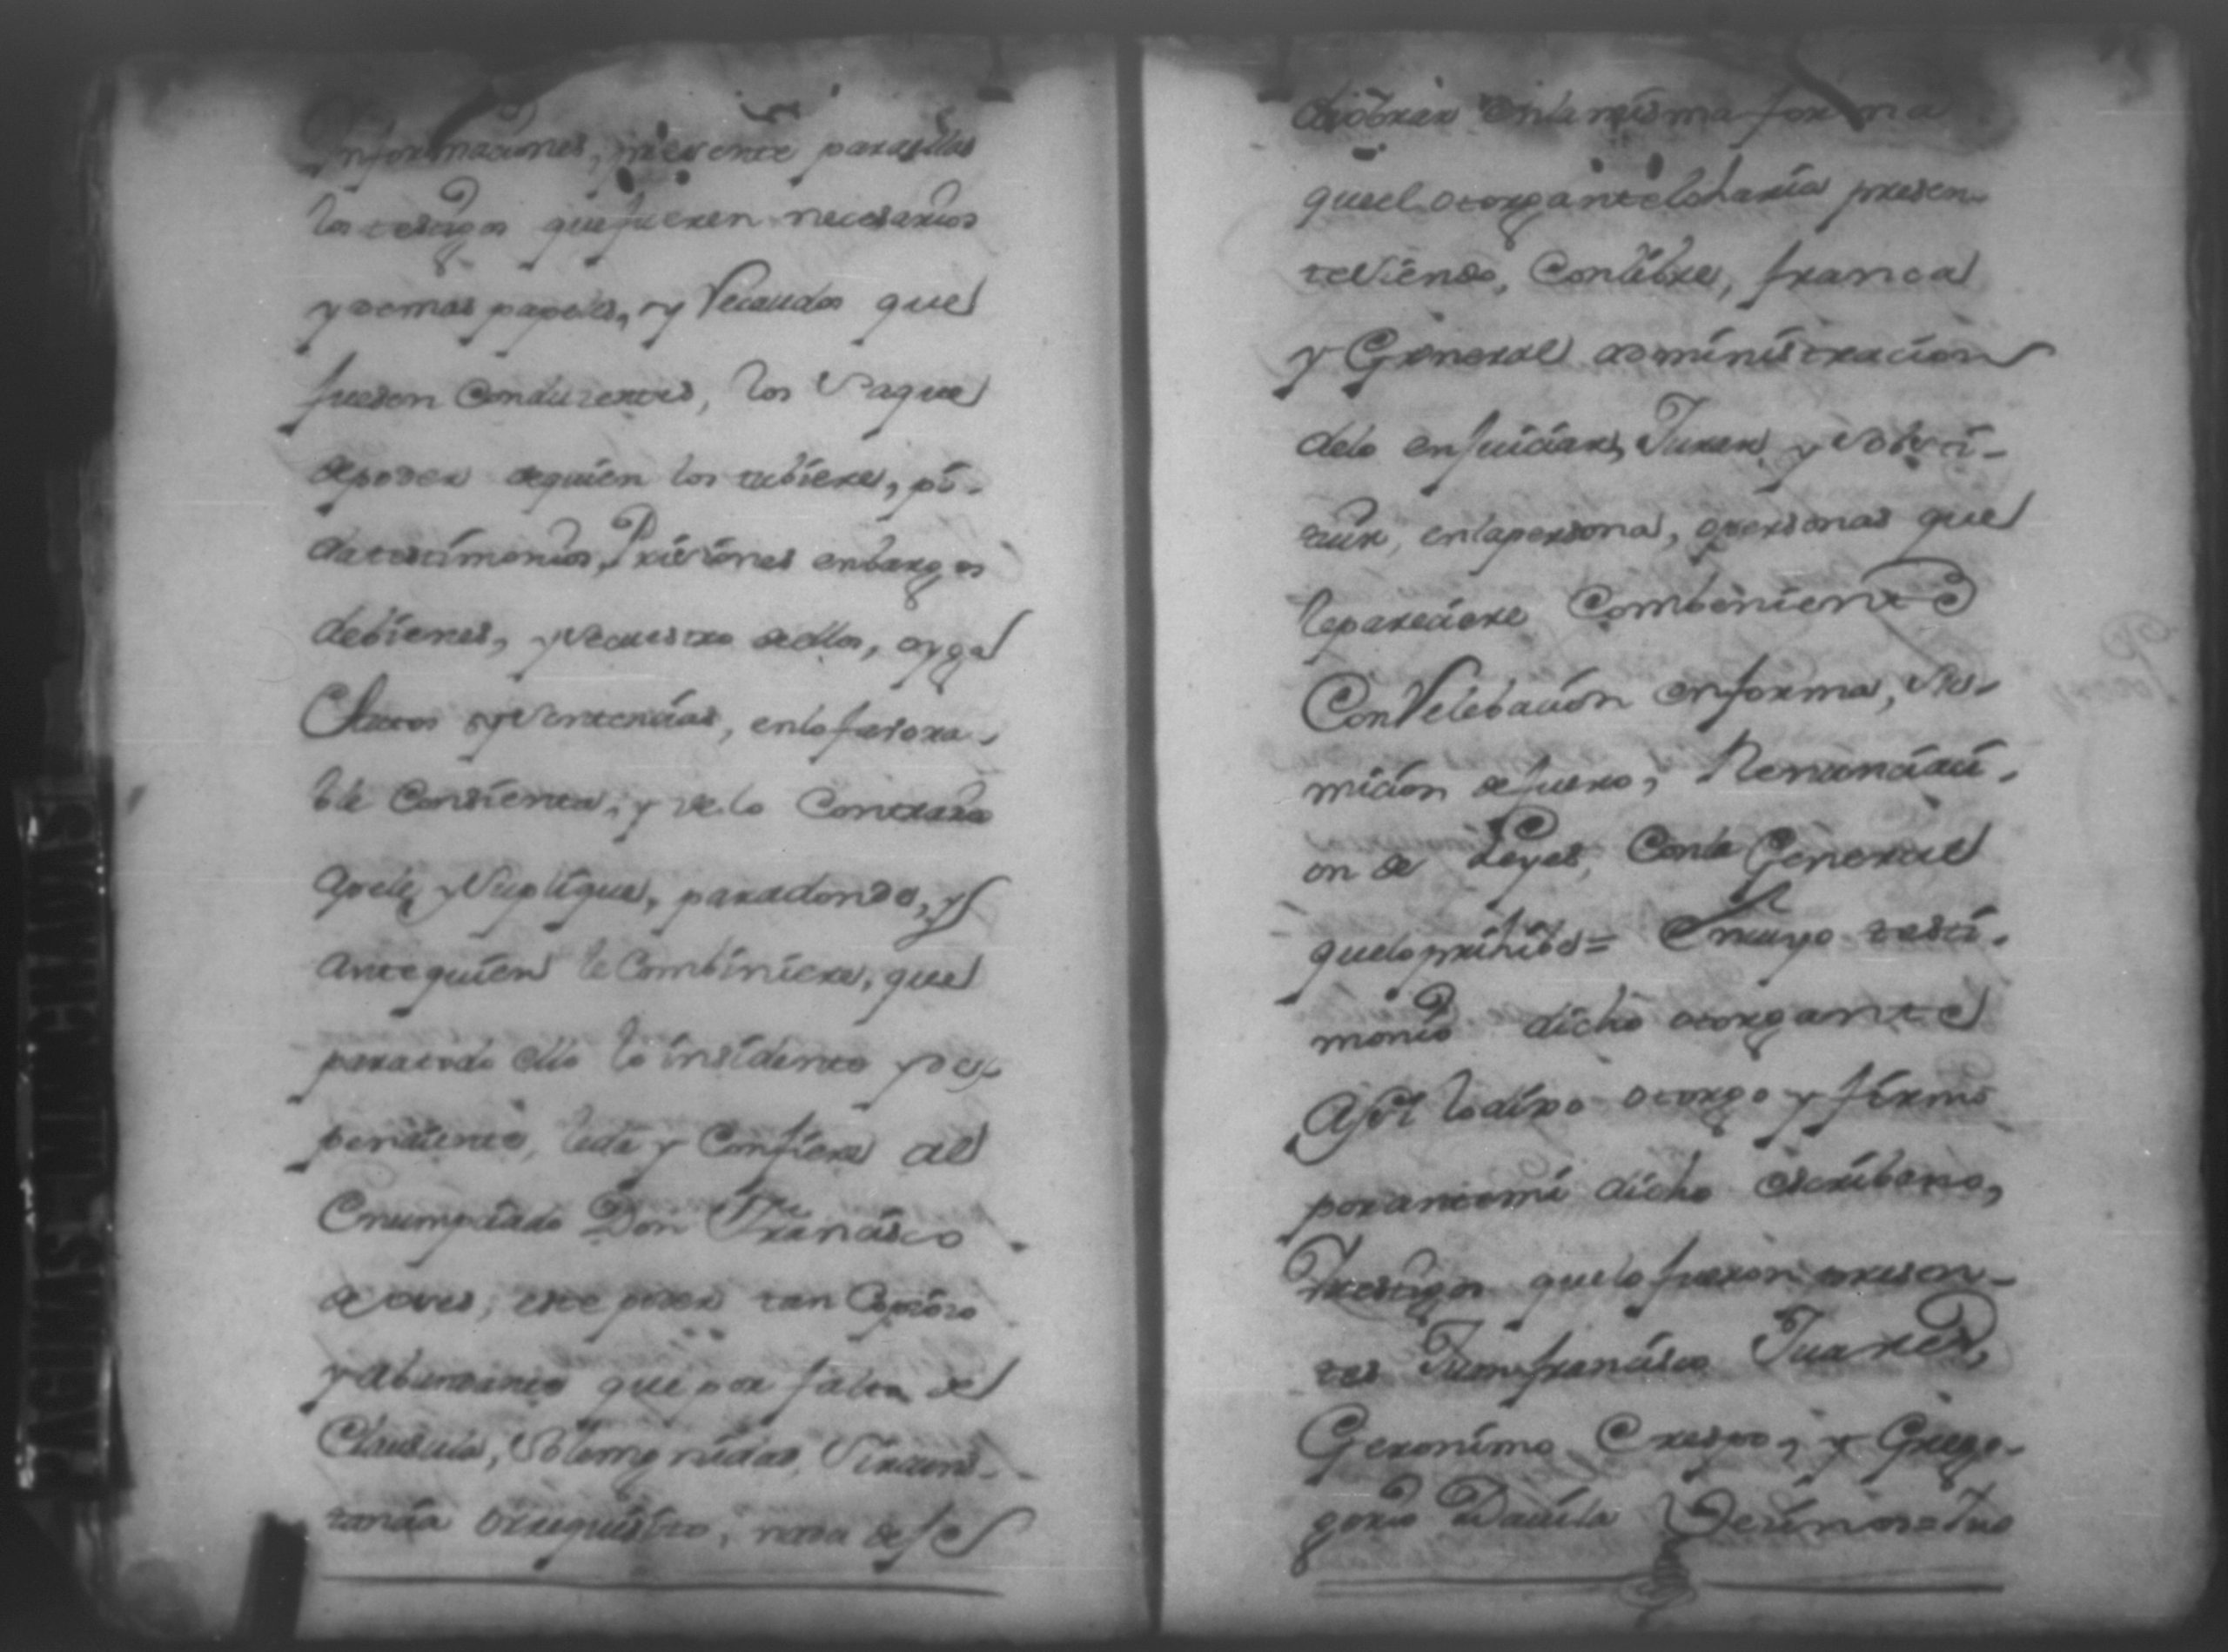 Informaciones, presente para ellas
los testigos que fueren necesarios
y demas papeles, y Recaudos que
fuesen Conduzentes, los Saque
de poder de quien los tubiere, pi-
da testimonios, Priciones enbargos
debienes, y Secuestro de ellos, oyga
Autos y Sentencias, en lo favora-
ble Consienta, y de lo Contrario
Apele, y Suplique, para donde, y
Ante quien le Combiniere, que
para todo ello lo insidente y de-
pendiente, le da y Confiere al
Enumpciado Don Francisco
este poder tan Copioso
y Abundante que por falta de
Clausula, Solemgnidad, Sircuns-
tancia o requisito, nada dese
de obrar en la misma forma
que el otorgante lo haria presen-
te Siendo, Con libre, franca
y General administracion
de lo enjuiciar, Jurar y Sobsti-
tuir, en la persona, o personas que
le pareciere Combeniente
Con Relebacion en forma, Su-
micion de fuero, Renunciaci-
on de Leyes, Con la General
que lo prohibe = En cuyo testi-
monio dicho otorgante
Assi lo dixo otorgo y firmo
por ante mi dicho escribano,
testigos que lo fueron presen-
tes Juan francisco Juarez,
Geronimo Crespo, y Grego-
gorio Davila Vecinos =